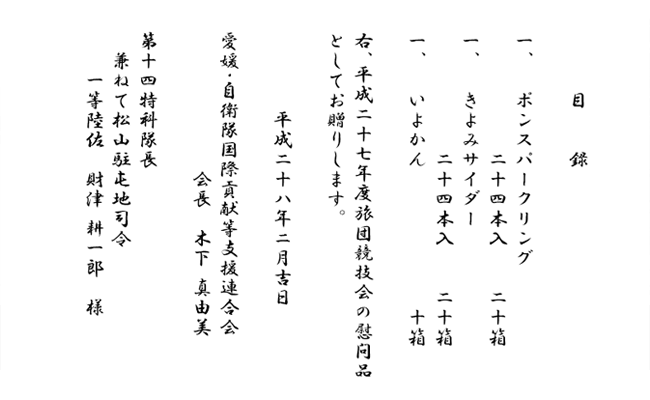 目 録
一、 ポンスパークリング
二十四本入 二十箱
一、 きよみサイダー
二十四本入 二十箱
一、 いよかん 十箱
右、平成二十七年度旅団競技会の慰問品
としてお贈りします。
平成二十八年二月吉日
愛媛・自衛隊国際貢献等支援連合会
会長 木下 真由美
第十四特科隊長
兼ねて松山駐屯地司令
一等陸佐 財津 耕一郎 様